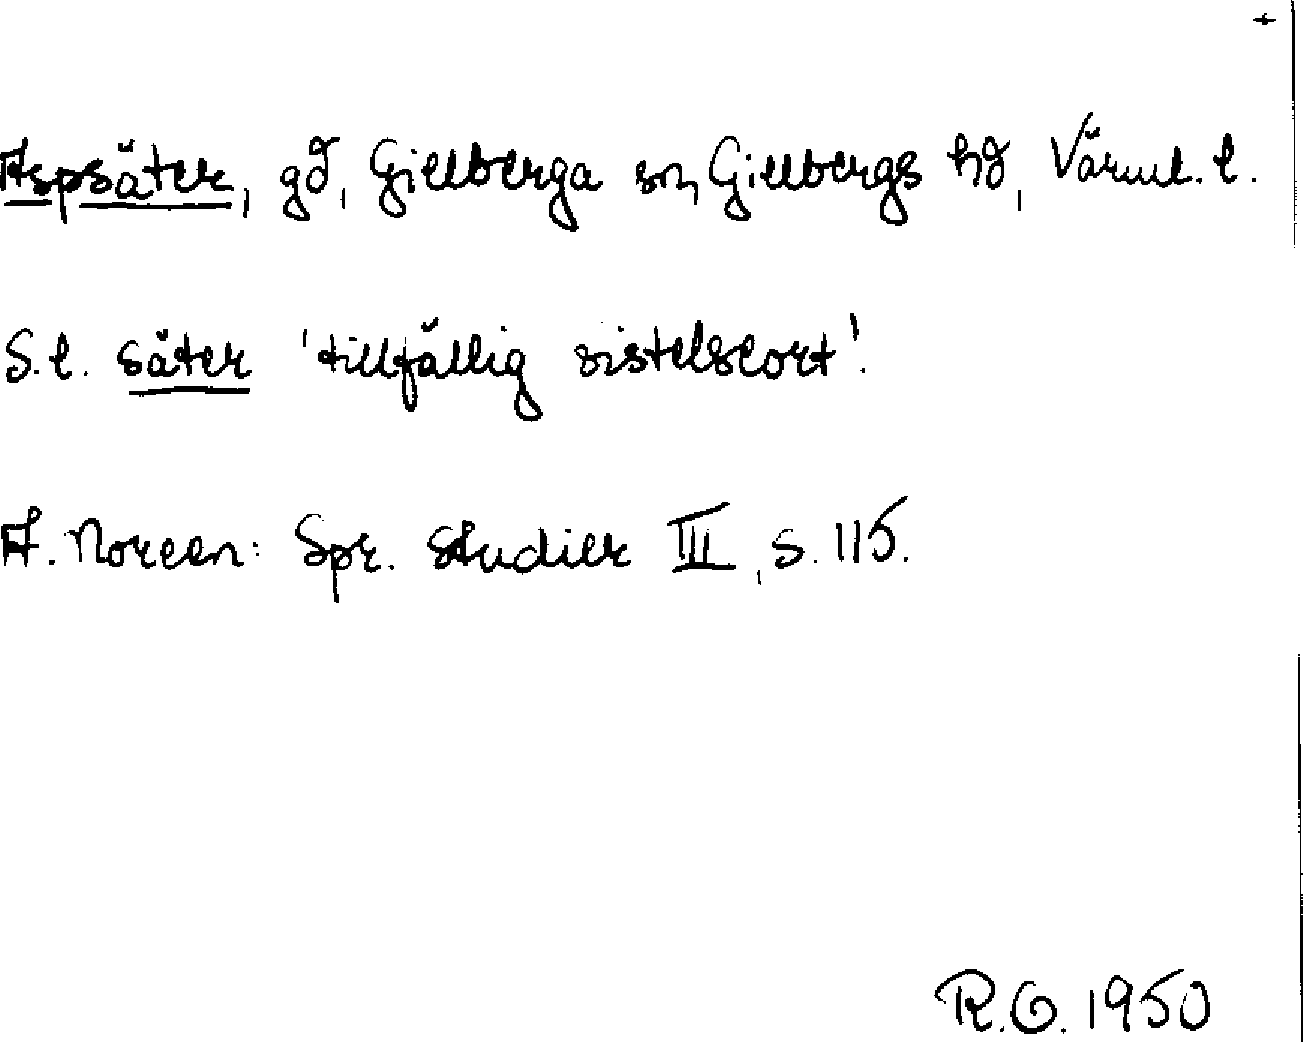 +
Aspsäter, gd, Gillberga sn, Gillbergs hd, Värml. l.
S.l. säter 'tillfällig vistelseort'.
A. Noreen: Spr. studier III, s. 115.
R.G. 1950